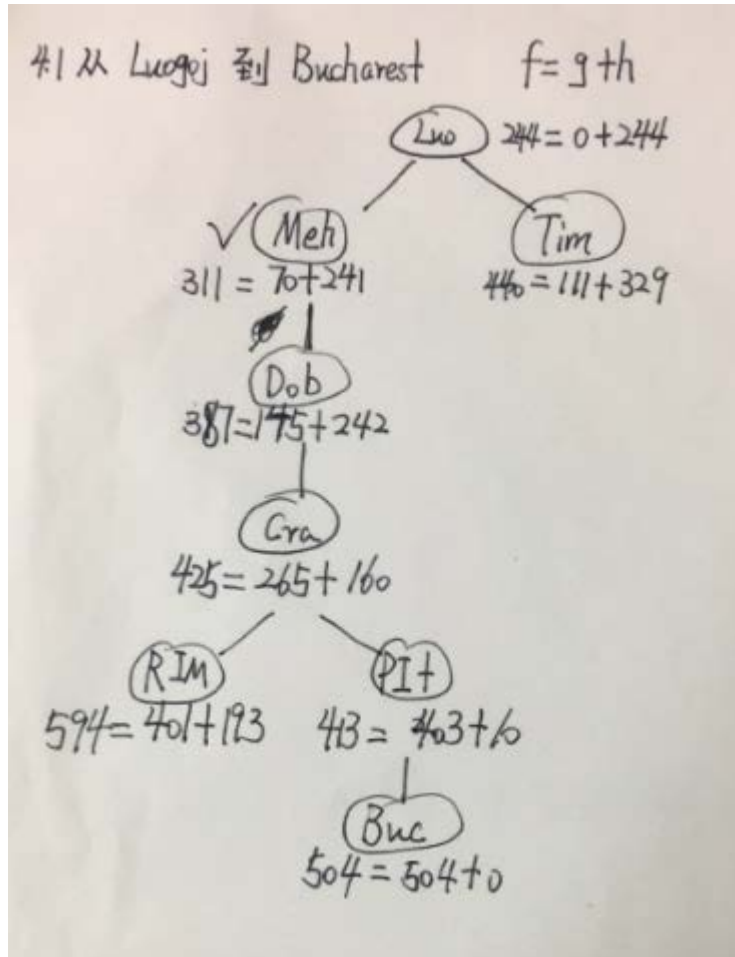 4.1 从 Luogoj 到 Bucharest f=g+h
Luo 244=0+244
✓ Meh Tim
311=70+241 440=111+329
Dob
387=145+242
Cra
425=265+160
RIM PIt
594=401+193 413=403+10
Buc
504=504+0